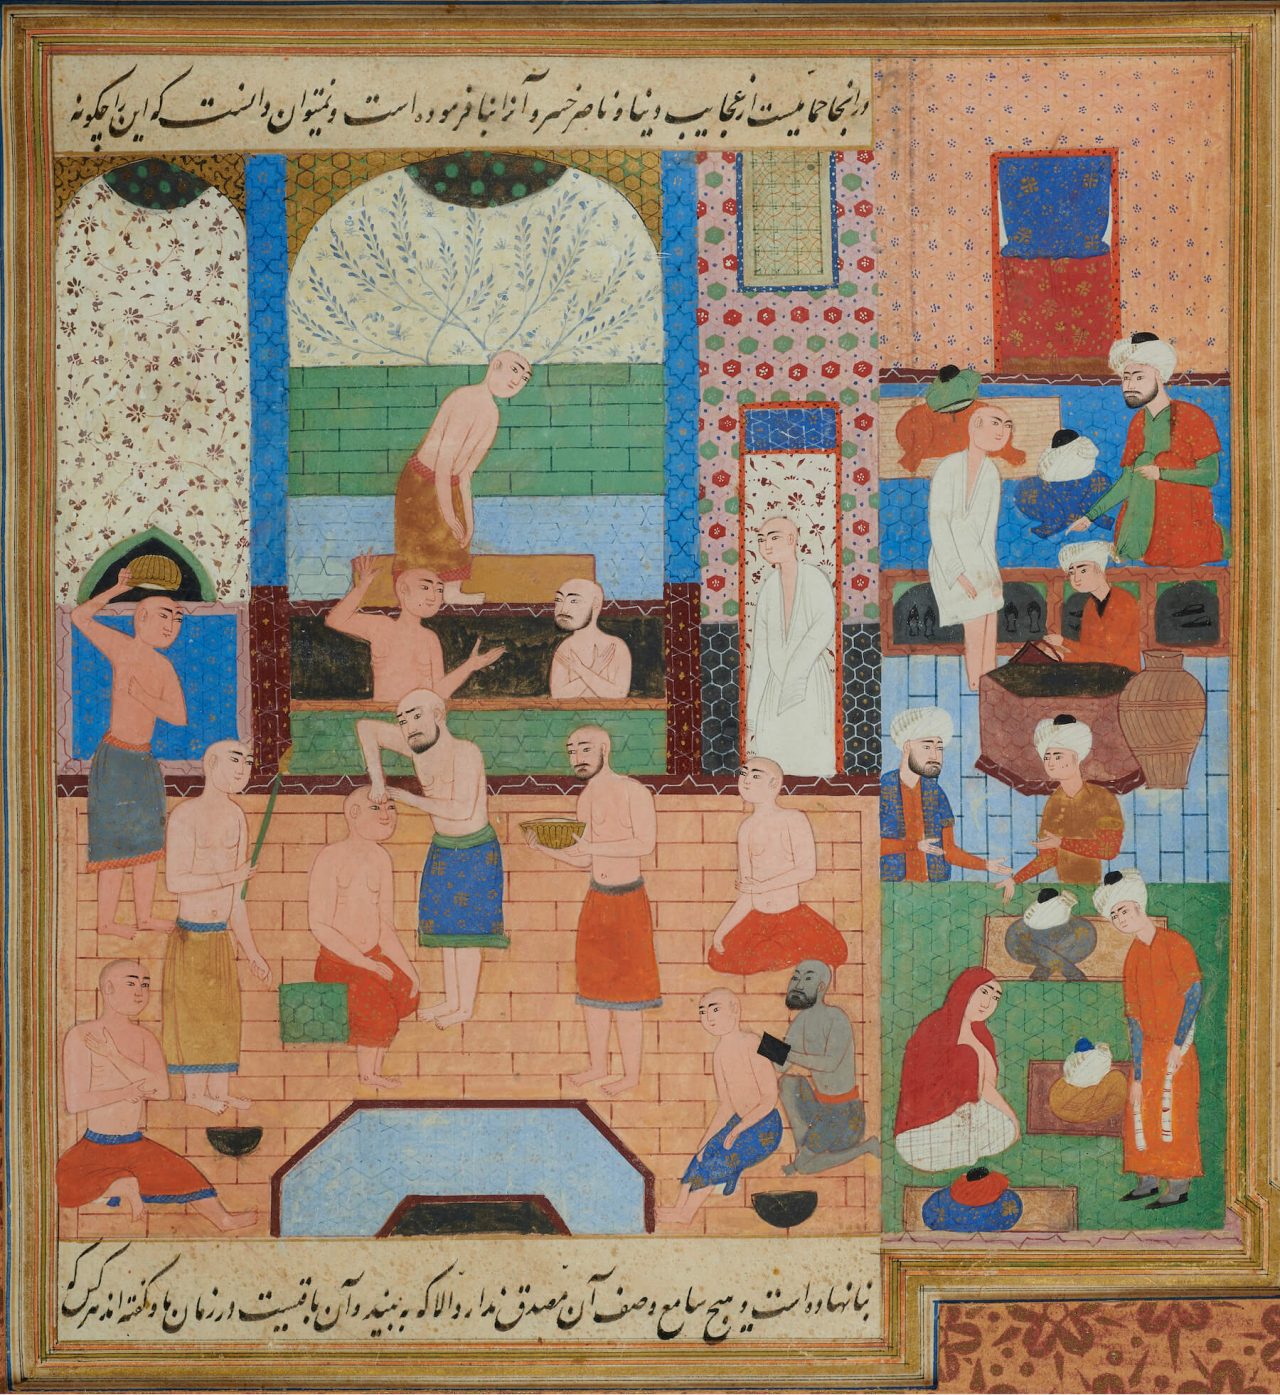 و آنجا حمامیست از عجایب دنیا و ناصر خسرو آنرا بنا فرموده است و نمیتوان دانست که این را چگونه
بنا نهاده است و هیچ سامع وصف آن مصدق ندارد الا که به بیند و آن باقیست در زمان ما و گفته اند هرکس که